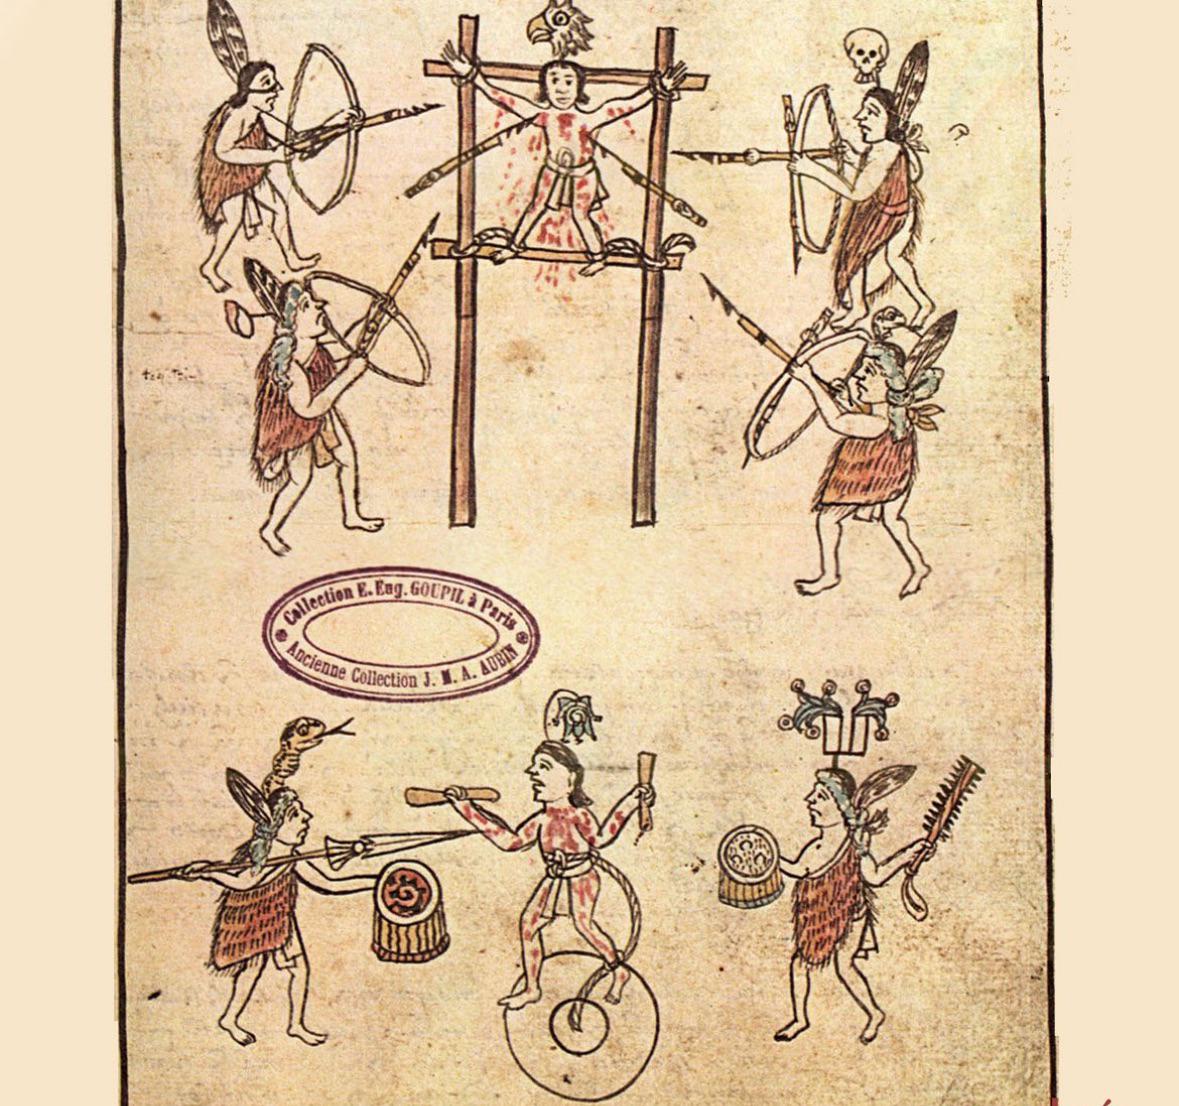 Collection E. Eug. GOUPIL à Paris
Ancienne Collection J. M. A. AUBIN